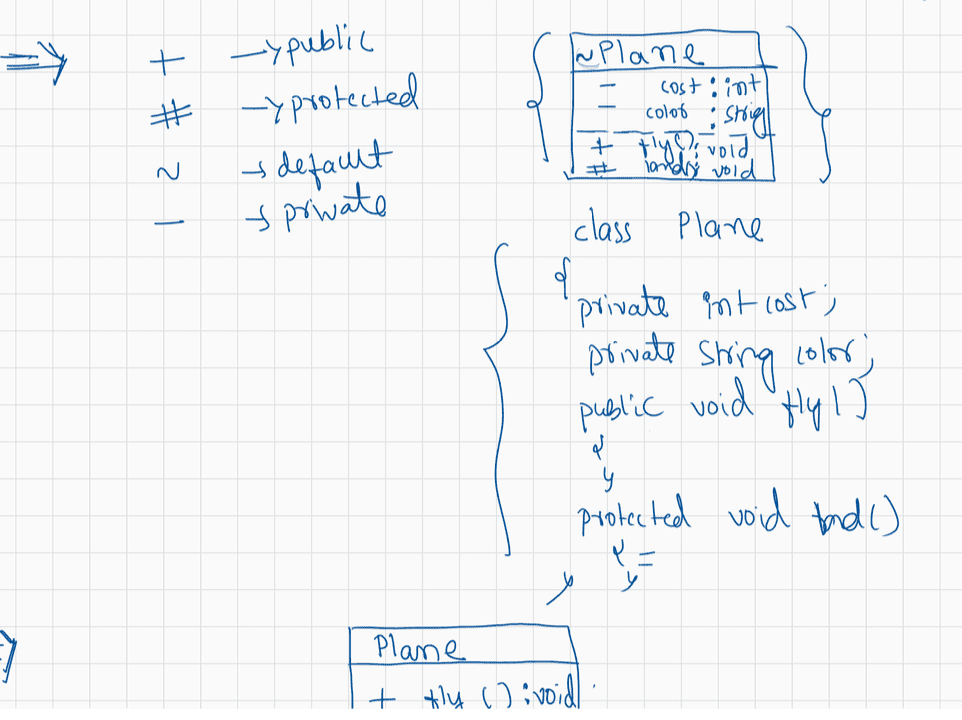 ⇒ + → public
# → protected
~ → default
− → private
~Plane
− cost : int
− color : string
+ fly() : void
# land() : void
class Plane
{
private int cost;
private String color;
public void fly()
{
}
protected void land()
{ =
}
}
Plane
+ fly () : void